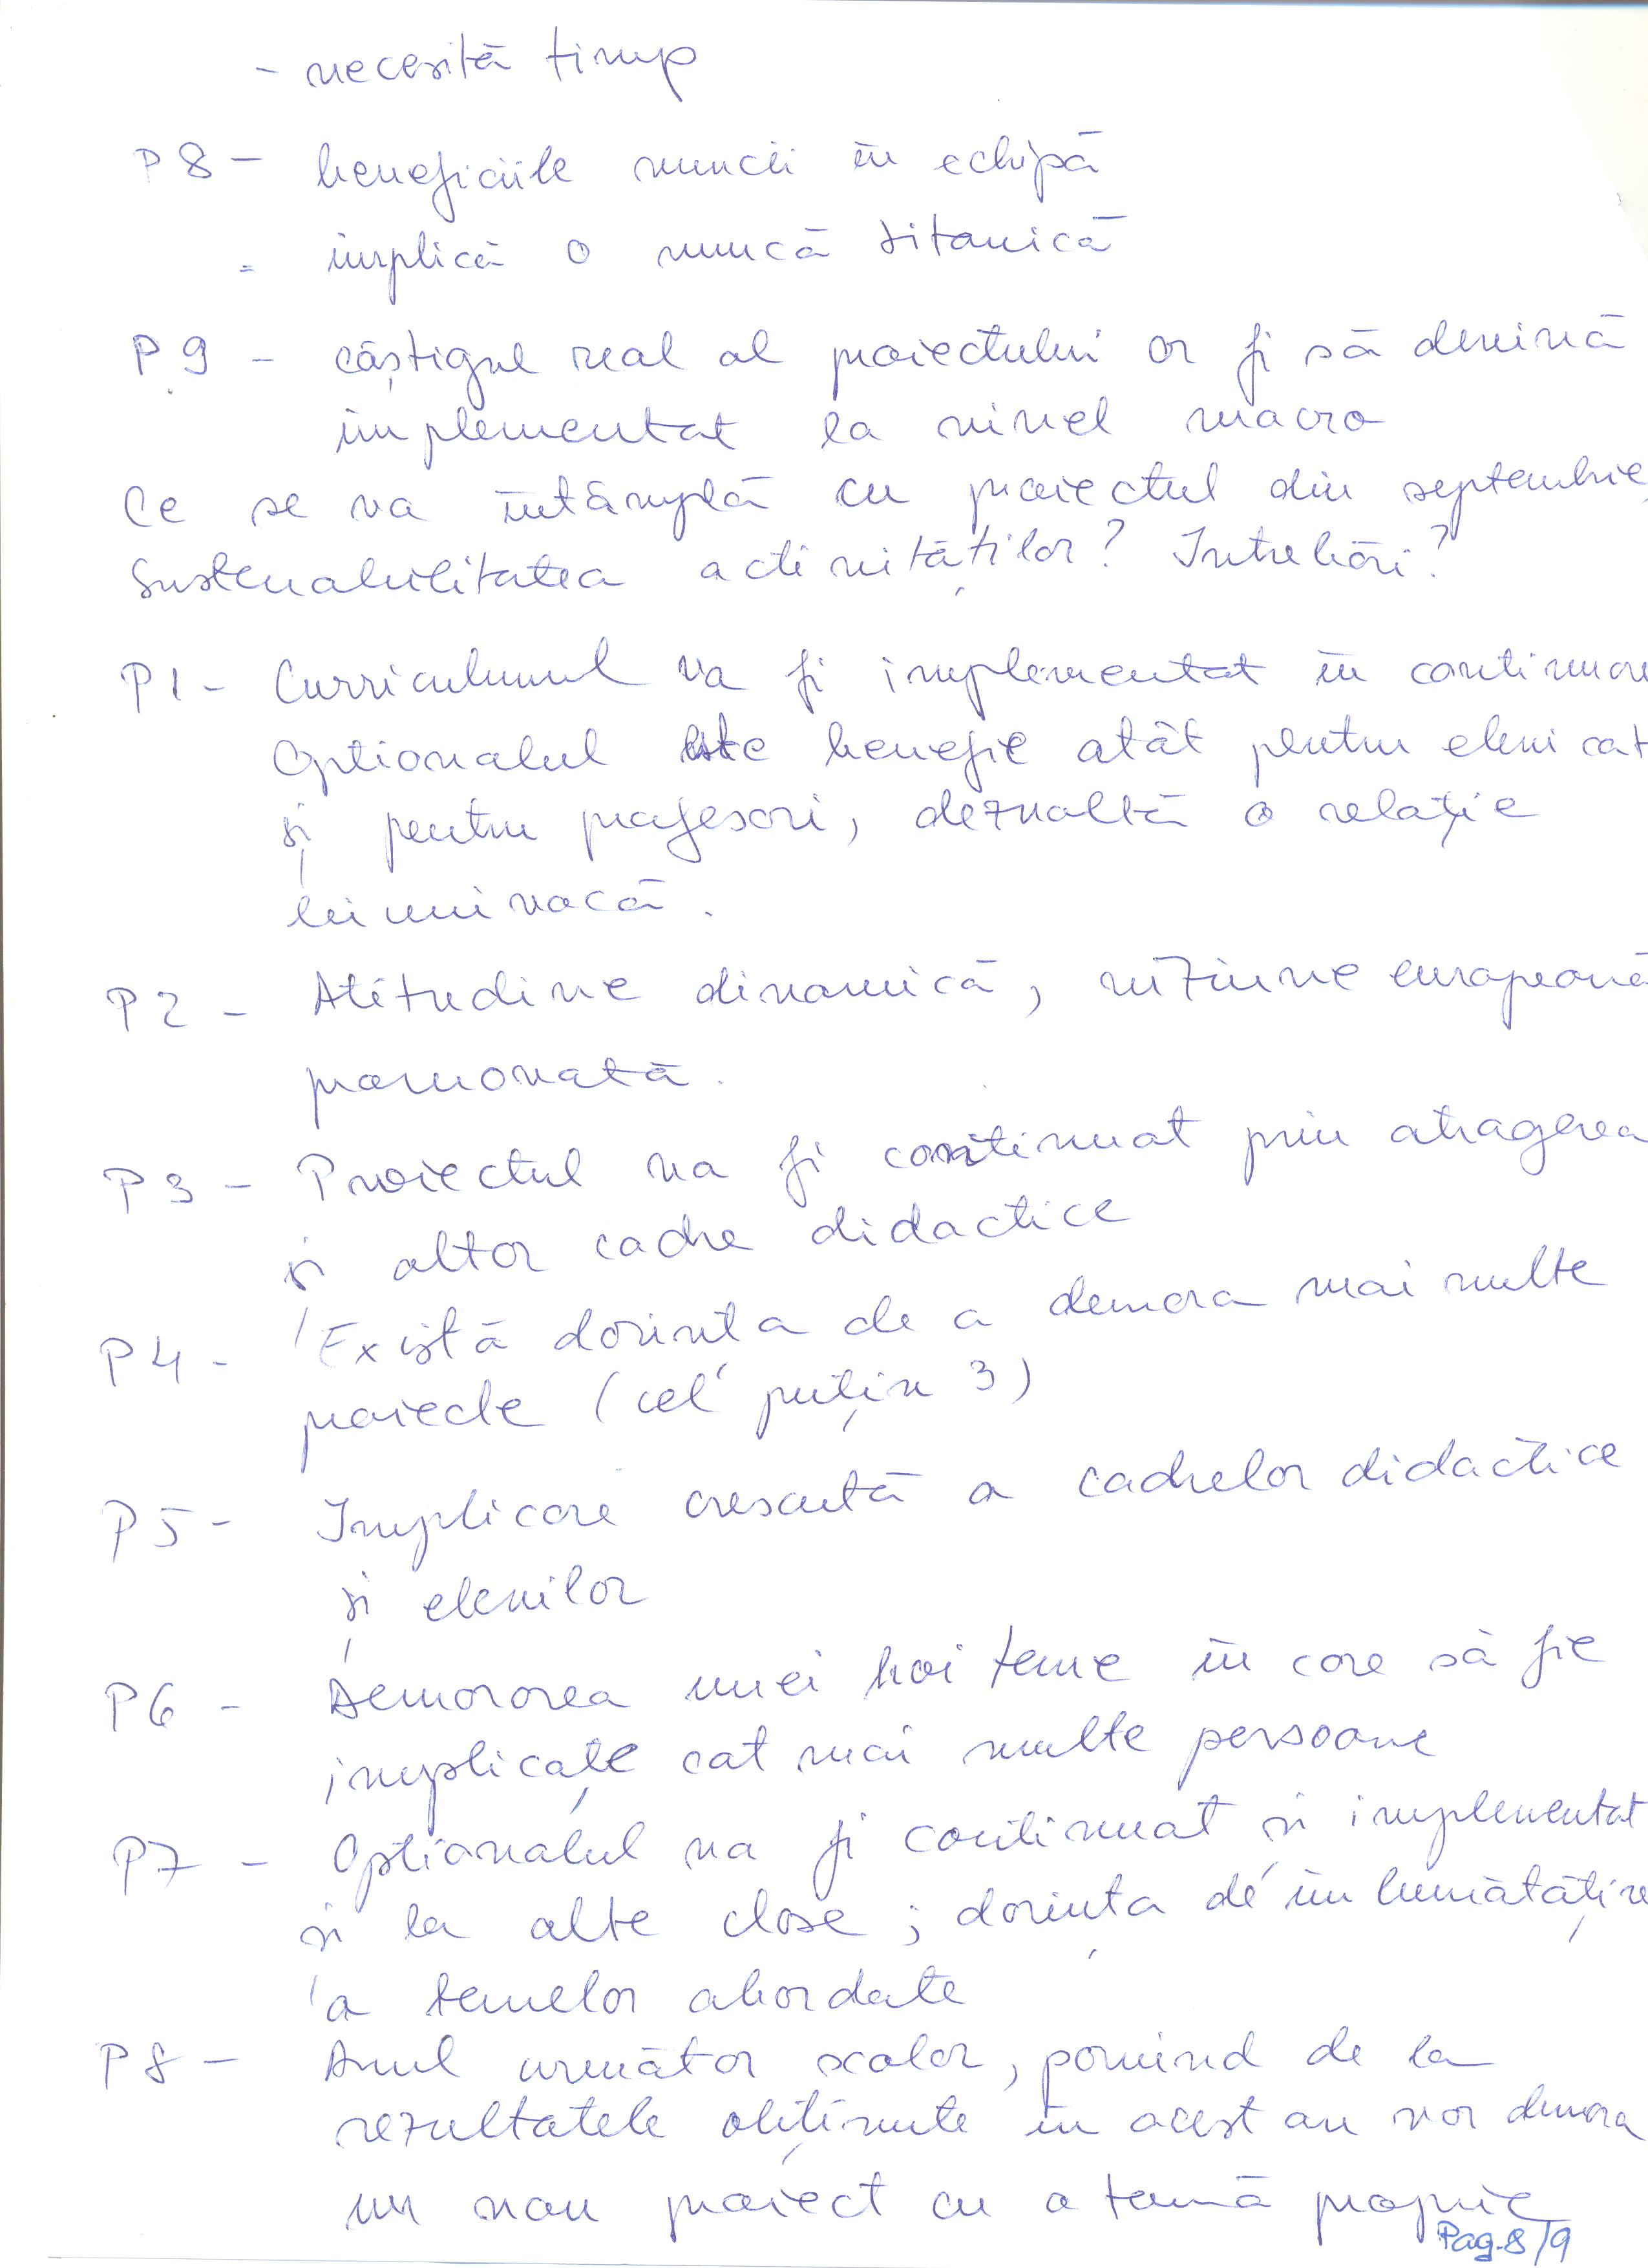 - necesită timp
P8 - beneficiile muncii în echipă
- implică o muncă titanică
P9 - câștigul real al proiectului ar fi să devină
implementat la nivel macro
Ce se va întâmplă cu proiectul din septembrie,
Sustenabilitatea activităților? Întrebări?
P1 - Curriculumul va fi implementat în continuare
Opționalul este benefic atât pentru elevi cat
și pentru profesori, dezvoltă o relație
biunivocă.
P2 - Atitudine dinamică, viziune europeană
P3 - Proiectul va fi continuat prin atragerea
și altor cadre didactice
P4 - Există dorința de a demara mai multe
proiecte (cel puțin 3)
P5 - Implicare crescută a cadrelor didactice
și elevilor
P6 - Demararea unei noi teme în care să fie
implicate cat mai multe persoane
P7 - Opționalul va fi continuat și implementat
și la alte clase; dorința de îmbunătățire
a temelor abordate
P8 - Anul următor scolar, pornind de la
rezultatele obținute în acest an vor demara
un nou proiect cu o temă proprie
Pag. 8/9